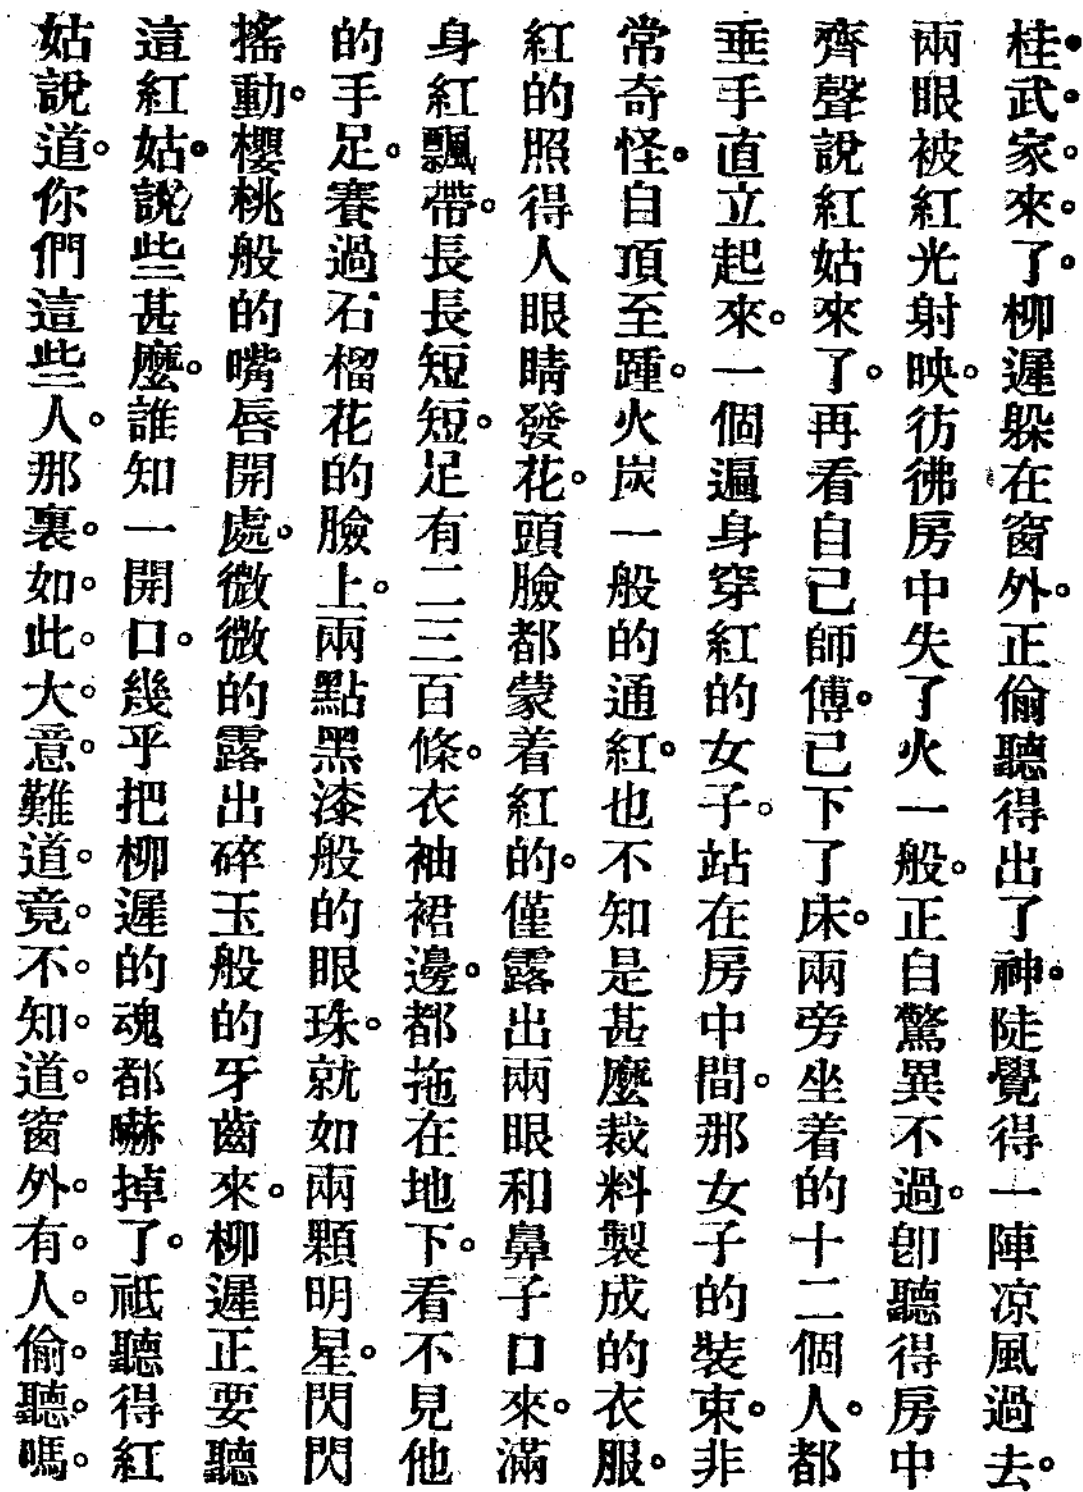 桂武家來了柳遲躲在窗外。正偷聽得出了神。陡覺得一陣凉風過去。
兩眼被紅光射映。彷彿房中失了火一般。正自驚異不過。卽聽得房中
齊聲說紅姑來了。再看自己師傅。已下了床。兩旁坐着的十二個人。都
垂手直立起來。一個遍身穿紅的女子。站在房中間。那女子的裝束。非
常奇怪。自頂至踵。火炭一般的通紅。也不知是甚麼裁料製成的衣服。
紅的照得人眼睛發花。頭臉都蒙着紅的。僅露出兩眼和鼻子口來。滿
身紅飄帶。長長短短。足有二三百條。衣袖裙邊。都拖在地下。看不見他
的手足。賽過石榴花的臉上。兩點黑漆般的眼珠。就如兩顆明星。閃閃
搖動。櫻桃般的嘴唇開處。微微的露出碎玉般的牙齒來。柳遲正要聽
這紅姑說些甚麼。誰知一開口。幾乎把柳遲的魂都嚇掉了。祗聽得紅
姑說道。你們這些人。那裏。如。此。大。意。難道。竟。不。知。道。窗外。有。人。偷。聽。嗎。